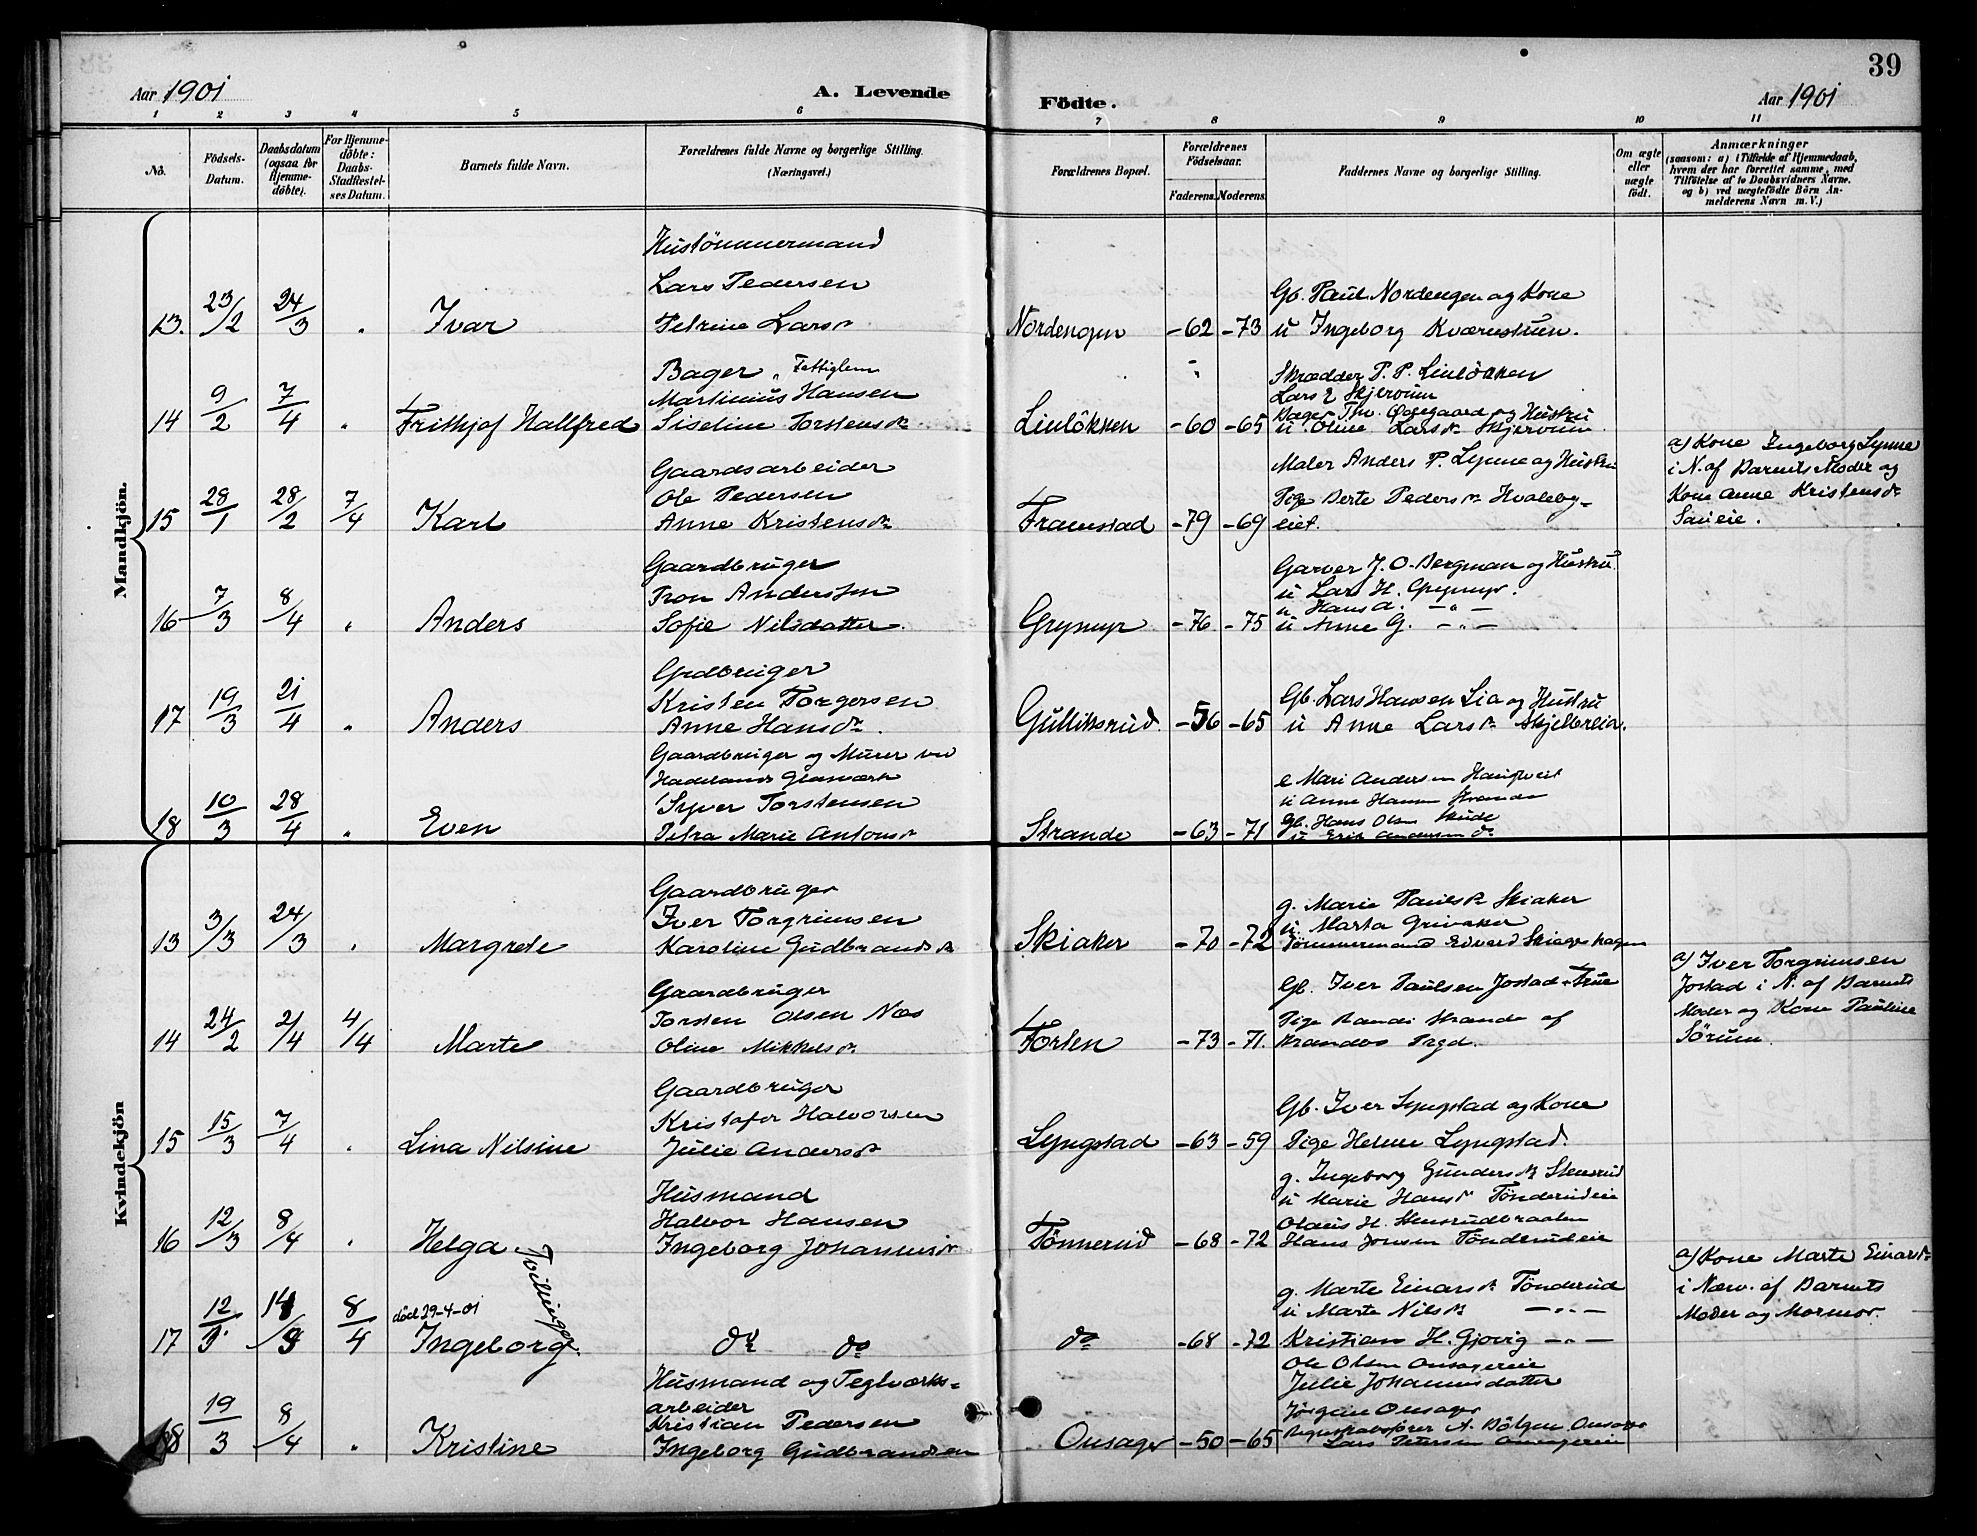 39
Aar 1901
A. Levende
Födte.
Aar 1901
1 2 3 4 5 6 7 8 9 10 11
No.
Födsels-Datum.
Daabsdatum (ogsaa for Hjemme-döbte).
For Hjemme-döbte: Daabs-Stadfestel-ses Datum.
Barnets fulde Navn.
Forældrenes fulde Navne og borgerlige Stilling.
(Næringsvei.)
Forældrenes Bopæl.
Forældrenes Födselsaar.
Faderens. Moderens.
Faddernes Navne og borgerlige Stilling.
Om ægte eller uægte födt.
Anmærkninger
(saasom: a) i Tilfælde af Hjemmedaab, hvem der har forrettet samme, med Tilföielse af to Daabsvidners Navne, og b) ved uægtefödte Börn An-melderens Navn m. V.)
Mandkjön.
Hustömmermand
Lars Pedersen
13. 23/2 24/3 " Ivar Petrine Larsdr
Nordengen -62 -73
Gb. Paul Nordengen og Kone
u Ingeborg Kværnstuen.
Bager, Fattiglem
Martinius Hansen
14 9/2 7/4 " Frithjof Hallfred Siseline Torstensdr
Linlökken -60 -65
Skrædder P. P. Linlökken
Lars E Skjervum
Bager Th. Ödegaard og Hustru
u Oline Larsdr Skjervum
Gaardsarbeider
Ole Pedersen
15 28/1 28/2 7/4 Karl Anne Kristensdr
Framstad -79 -69
Maler Anders P. Lynne og Hustru
Pige Berte Pedersdr Hvaleby-
eiet.
a) Kone Ingeborg Lynne
i N. af Barnets Moder og
Kone Anne Kristensdr
Gaardbruger
Tron Anderssen
16 7/3 8/4 " Anders Sofie Nilsdatter.
Grymyr -76 -75
Garver J. O. Bergman og Hustru
u Lars H. Grymyr.
u Hans A. — " —
u Anne G. — " —
Grdbruger
Kristen Torgersen
17 19/3 21/4 " Anders Anne Hansdr.
Gulliksrud -56 -65
Gb. Lars Hansen Lia og Hustru
u Anne Larsdr Skjelbreia.
Gaardbruger og Murer ved
Hadelands Glasværk
Syver Torstensen
18 10/3 28/4 " Even Petra Marie Antonsdr
Strande -63 -71
e Mari Andersen Haugtveit
u Anne Hansen Strande
Gb. Hans Olsen Skude
u Erik Andersen do
Kvindekjön
Gaardbruger
Iver Torgrimsen
13 3/3 24/3 " Margrete Karoline Gudbrandsdr
Skiaker -70 -72
g. Marie Paulsdr Skiaker
u. Marta Grinaker
Tömmermand Edvard Skiagerhagen
Gaardbruger
Torsten Olsen Næs
14 24/2 2/4 4/4 Marte Oline Mikkelsdr
Forten -73 -71.
Gb. Iver Paulsen Jostad + Frue
Pige Randi Strande af
Brandbo Prgd.
a) Iver Torgrimsen
Jostad i N. af Barnets
Moder og Kone Pauline
Sörum.
Gaardbruger
Kristofer Halvorsen
15 15/3 7/4 " Lina Nilsine Julie Andersdr
Lyngstad -63 -59
Gb. Iver Lyngstad og Kone
Pige Helene Lyngstad.
Husmand
Halvor Hansen
16 12/3 8/4 " Helga Ingeborg Johannesdr
Tönnerud -68 -72
g. Ingeborg Gundersdr Stenerud
u Marie Hansdr Tönderudeie
Olaus H. Stenrudbraaten
Hans Jonsen Tönderudeie
Tvillinger
död 29-4-01
17 12/3 14/3 8/4 Ingeborg do do
do -68 -72
g. Marte Einarsdr Tönderud
u Marte Nilsdr — " —
Kristian H. Gjövig — " —
Ole Olsen Onsagereie
a) Kone Marte Einarsdr
i Nærv. af Barnets
Moder og Mormor.
Husmand og Teglværks-
arbeider
Kristian Pedersen
18 19/3 8/4 " Kristine Ingeborg Gudbrandsen
Onsager -50 -65
Julie Johannesdatter
Jörgine Onsager
Regnskabsförer A. Bölgen Onsager
Lars Petersen Onsagereie